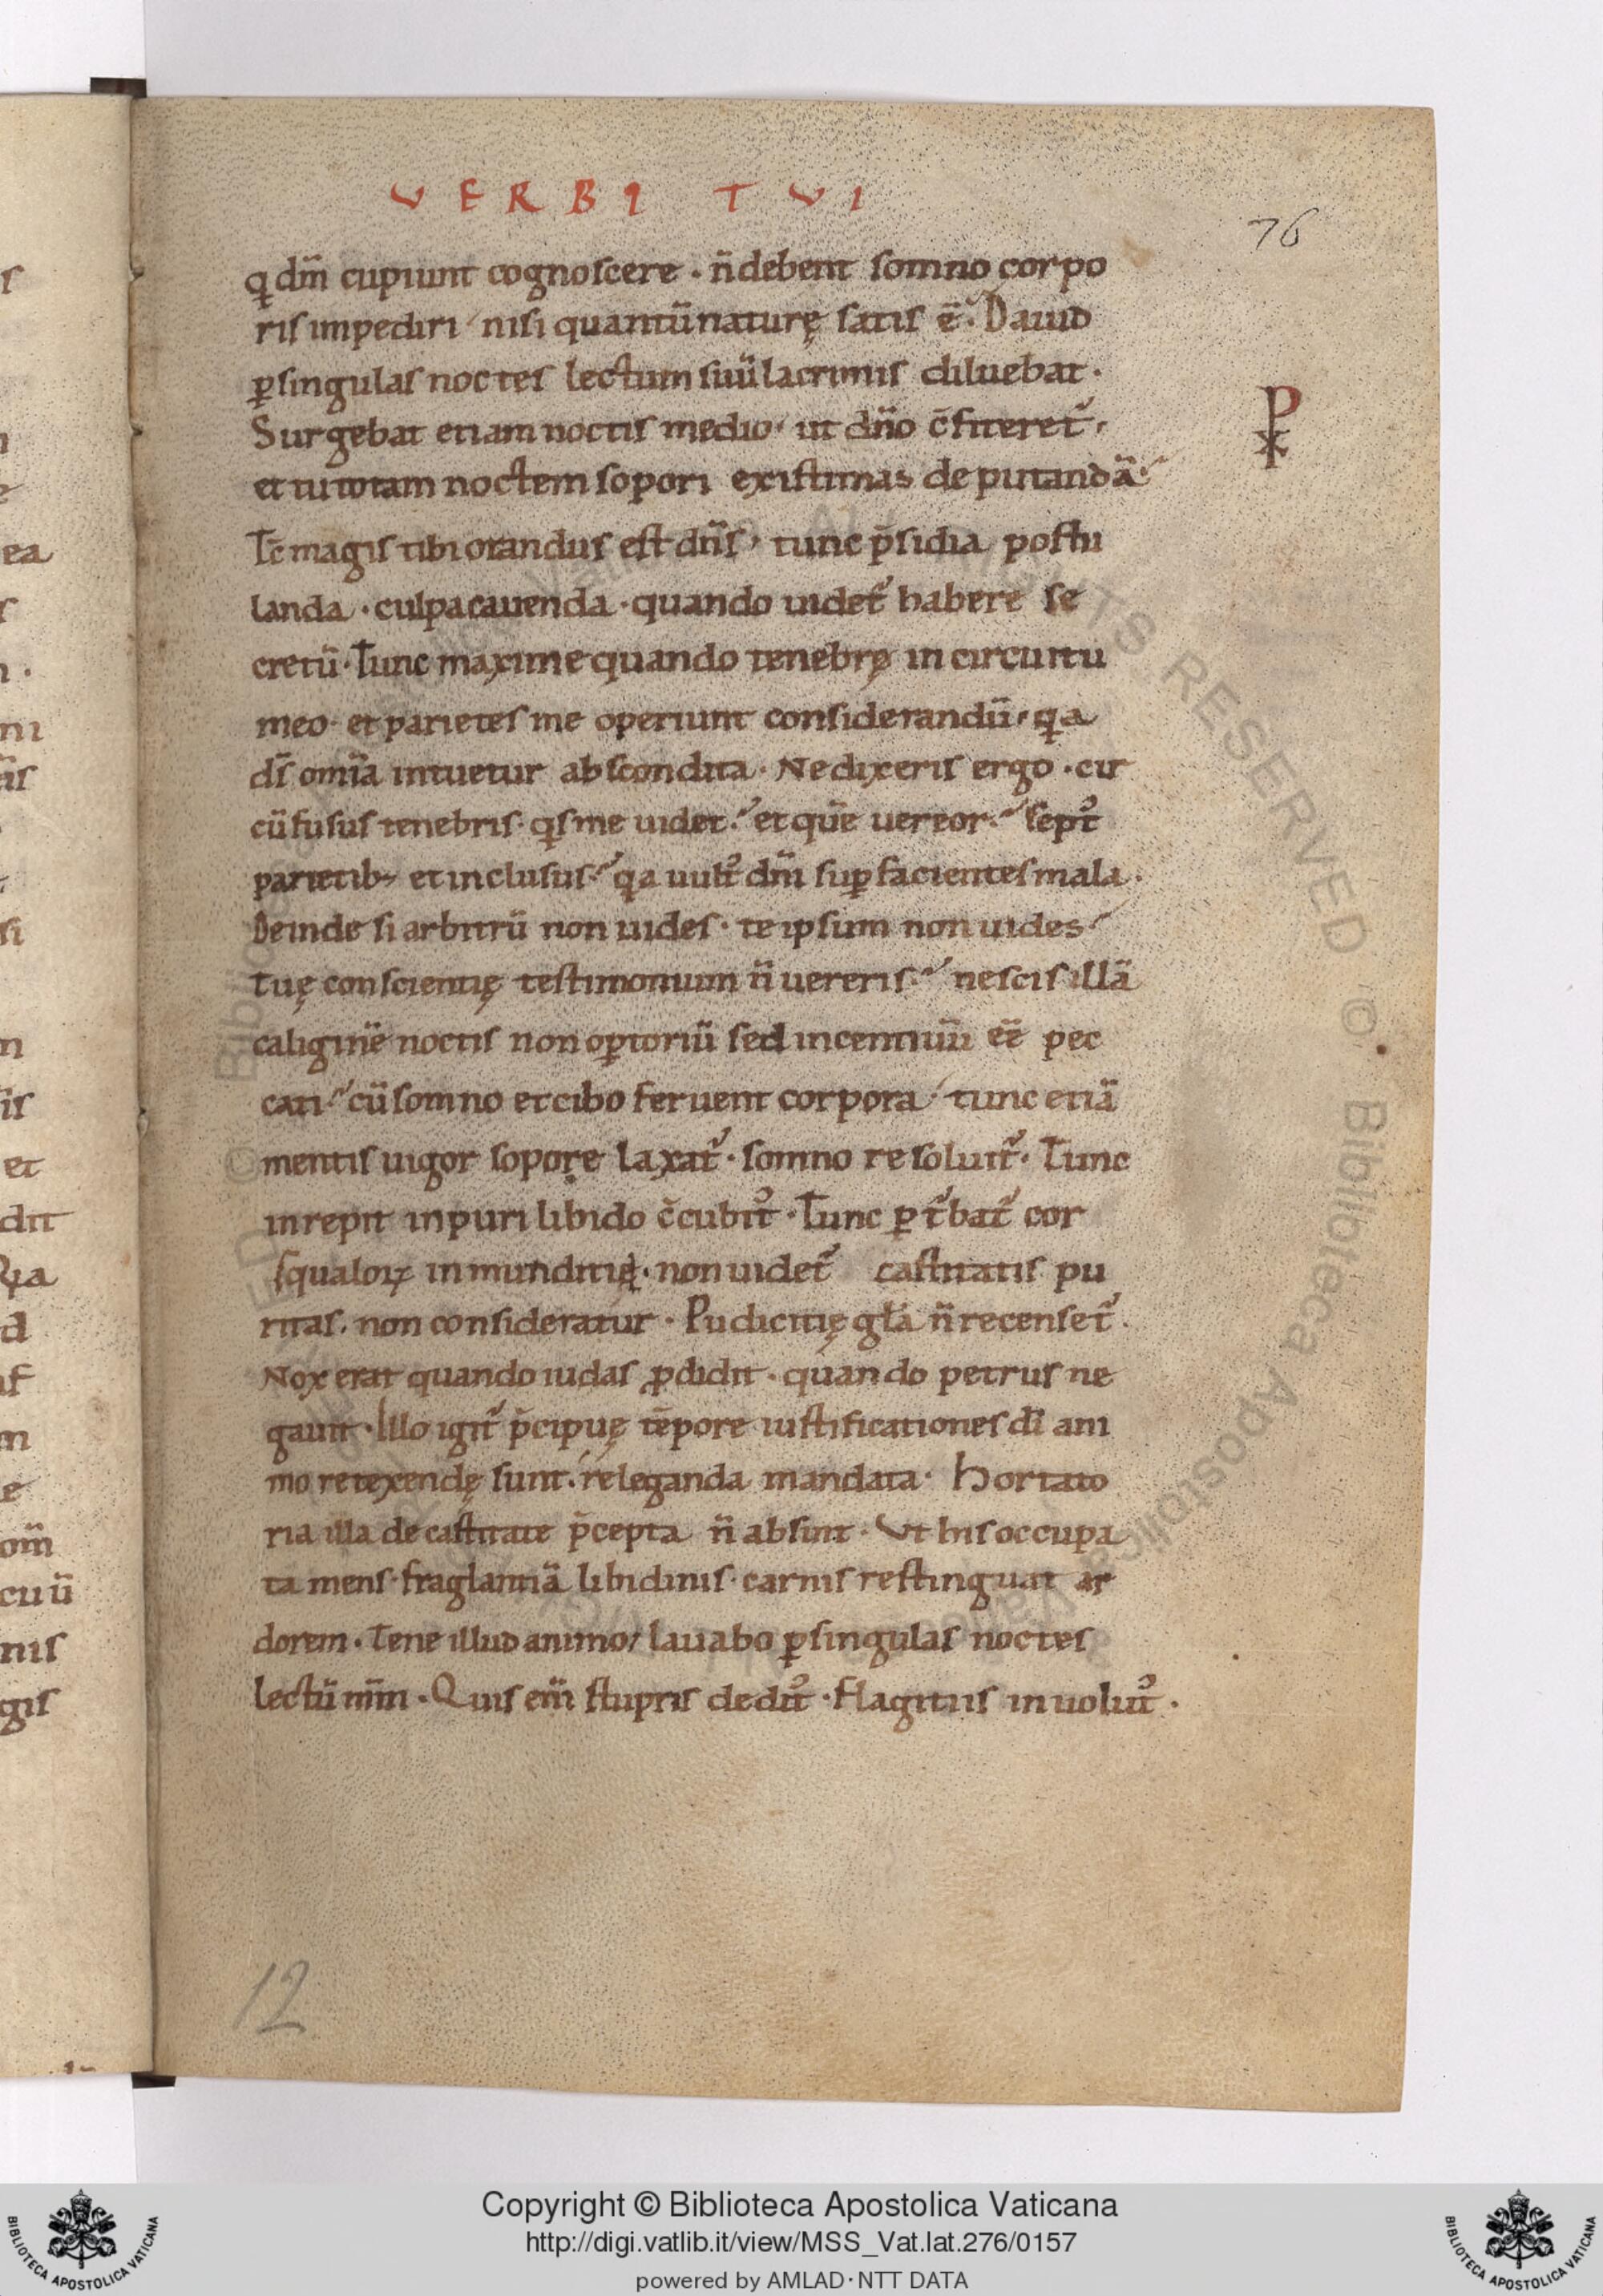 VERBI TVI
76
q dm̄ cupiunt cognoscere · n̄ debent somno corpo
ris impediri nisi quantū naturę satis ē. Dauid
ꝑ singulas noctes lectum suū lacrimis diluebat ·
Surgebat etiam noctis medio ut dn̄o c̄fiteret᷑,
et tu totam noctem sopori existimas deputandā
Tc̄ magis tibi orandus est dn̄s, tunc p̄sidia postu
landa · culpa cauenda · quando uidet᷑ habere se
cretū · Tunc maxime quando tenebrę in circuitu
meo · et parietes me operiunt considerandū, qa
ds̄ omīa intuetur abscondita · Ne dixeris ergo · cir
cūfusus tenebris · qs me uidet. et quē uereor. sept᷒
parietib; et inclusus. qa uult᷒ dm̄ suꝑ facientes mala ·
Deinde si arbitrū non uides · te ipsum non uides
tuę conscientię testimonium n̄ uereris. nescis illā
caliginē noctis non oꝑtoriū sed incentiuū eē pec
cati cū somno et cibo feruent corpora tunc etiā
mentis uigor sopore laxat᷑ · somno resoluit᷑. Tunc
inrepit inpuri libido c̄cubit᷒ · Tunc ꝑt᷑bat᷑ cor
squaloꝝ inmunditię · non uidet᷑ castitatis pu
ritas, non consideratur · Pudicitię gl̄a n̄ recenset᷑.
Nox erat quando iudas ꝓdidit · quando petrus ne
gauit · Illo igit᷑ p̄cipuę tēpore iustificationes dī ani
mo retexendę sunt. releganda mandata · Hortato
ria illa de castitate p̄cepta n̄ absint · Vt his occupa
ta mens · fraglantiā libidinis · carnis restinguat ar
dorem · Tene illud animo, lauabo ꝑ singulas noctes
lectū m̄m · Quis em̄ stupris dedit᷒ · Flagitiis inuolut᷒ ·
12
Copyright © Biblioteca Apostolica Vaticana
http://digi.vatlib.it/view/MSS_Vat.lat.276/0157
powered by AMLAD·NTT DATA